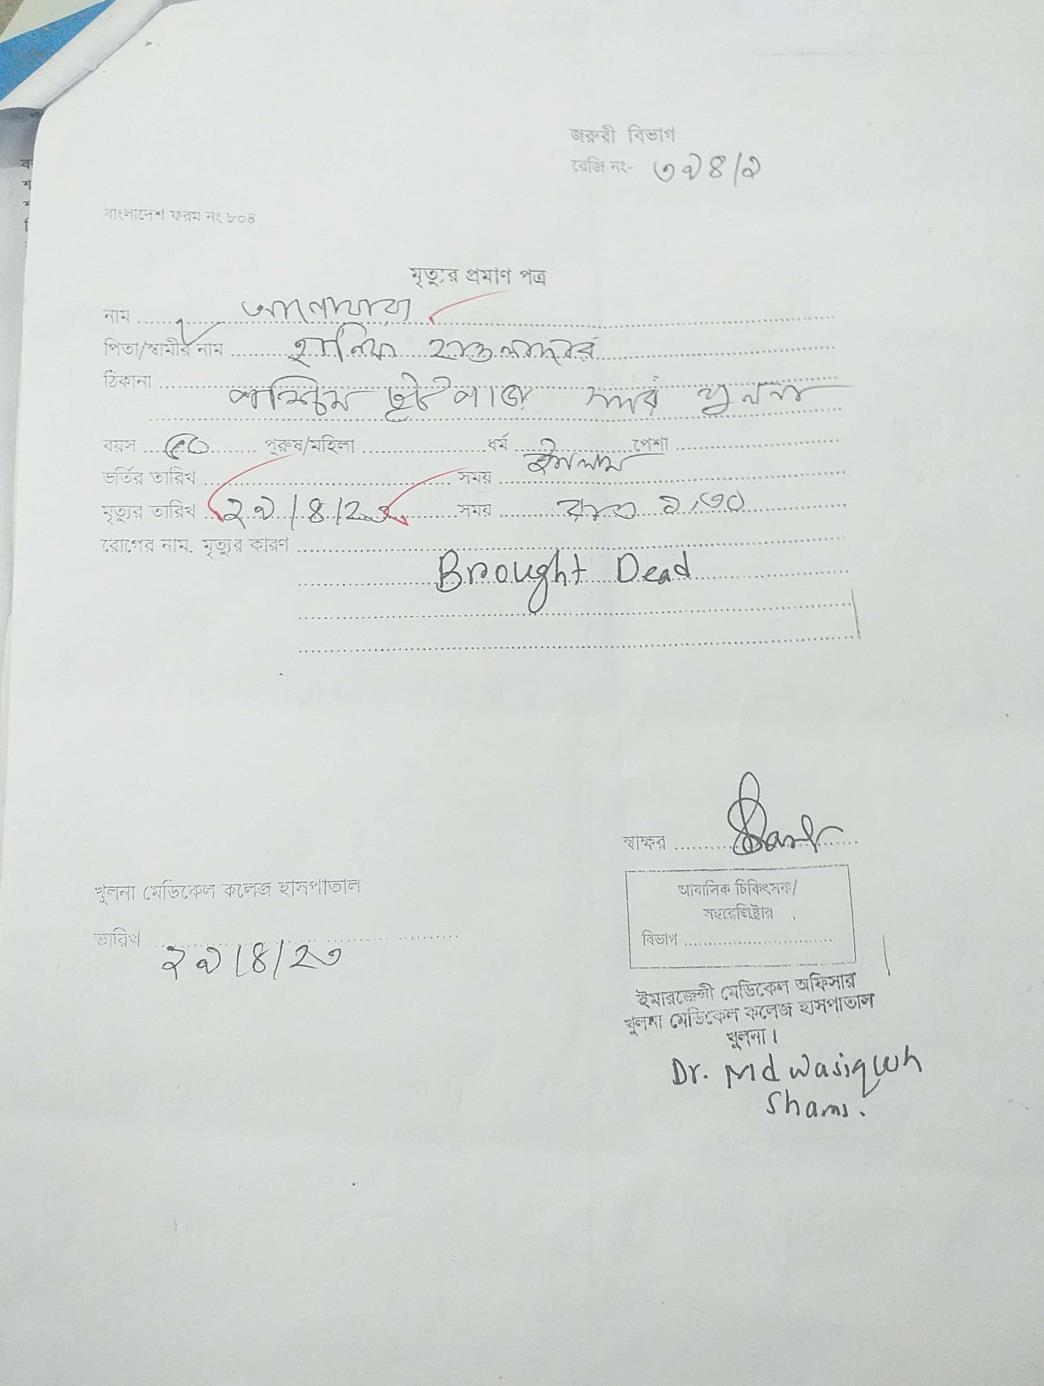 জরুরী বিভাগ
রেজি নং- ৩৯৪/৯
বাংলাদেশ ফরম নং ৮০৪
মৃত্যুর প্রমাণ পত্র
নাম আনোয়ারা
পিতা/স্বামীর নাম হানিফ হাওলাদার
ঠিকানা
পশ্চিম টুটপাড়া সদর খুলনা
বয়স ৫০ পুরুষ/মহিলা ধর্ম ইসলাম পেশা
ভর্তির তারিখ সময়
মৃত্যুর তারিখ ২৯/৪/২৩ সময় রাত ৯.৩০
রোগের নাম. মৃত্যুর কারণ
Brought Dead
স্বাক্ষর
খুলনা মেডিকেল কলেজ হাসপাতাল
আবাসিক চিকিৎসক/
সহরেজিষ্ট্রার
তারিখ ২৯/৪/২৩
বিভাগ
ইমারজেন্সী মেডিকেল অফিসার
খুলনা মেডিকেল কলেজ হাসপাতাল
খুলনা।
Dr. Md Wasiquh
Shams.